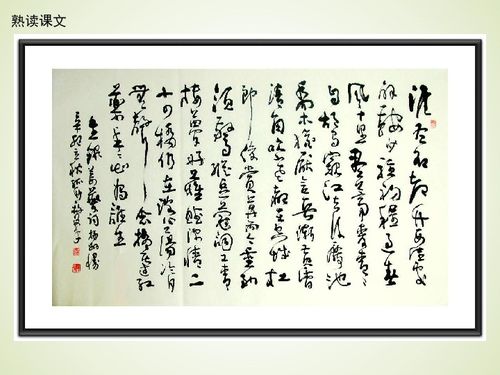 熟读课文
淮左名都竹西佳处
解鞍少驻初程过春
风十里尽荠麦青青
自胡马窥江去后废池
乔木犹厌言兵渐黄昏
清角吹寒都在空城杜
郎俊赏算而今重到
须惊纵豆蔻词工青
楼梦好难赋深情二
十四桥仍在波心荡冷月
无声念桥边红
药年年知为谁生
姜夔词扬州慢